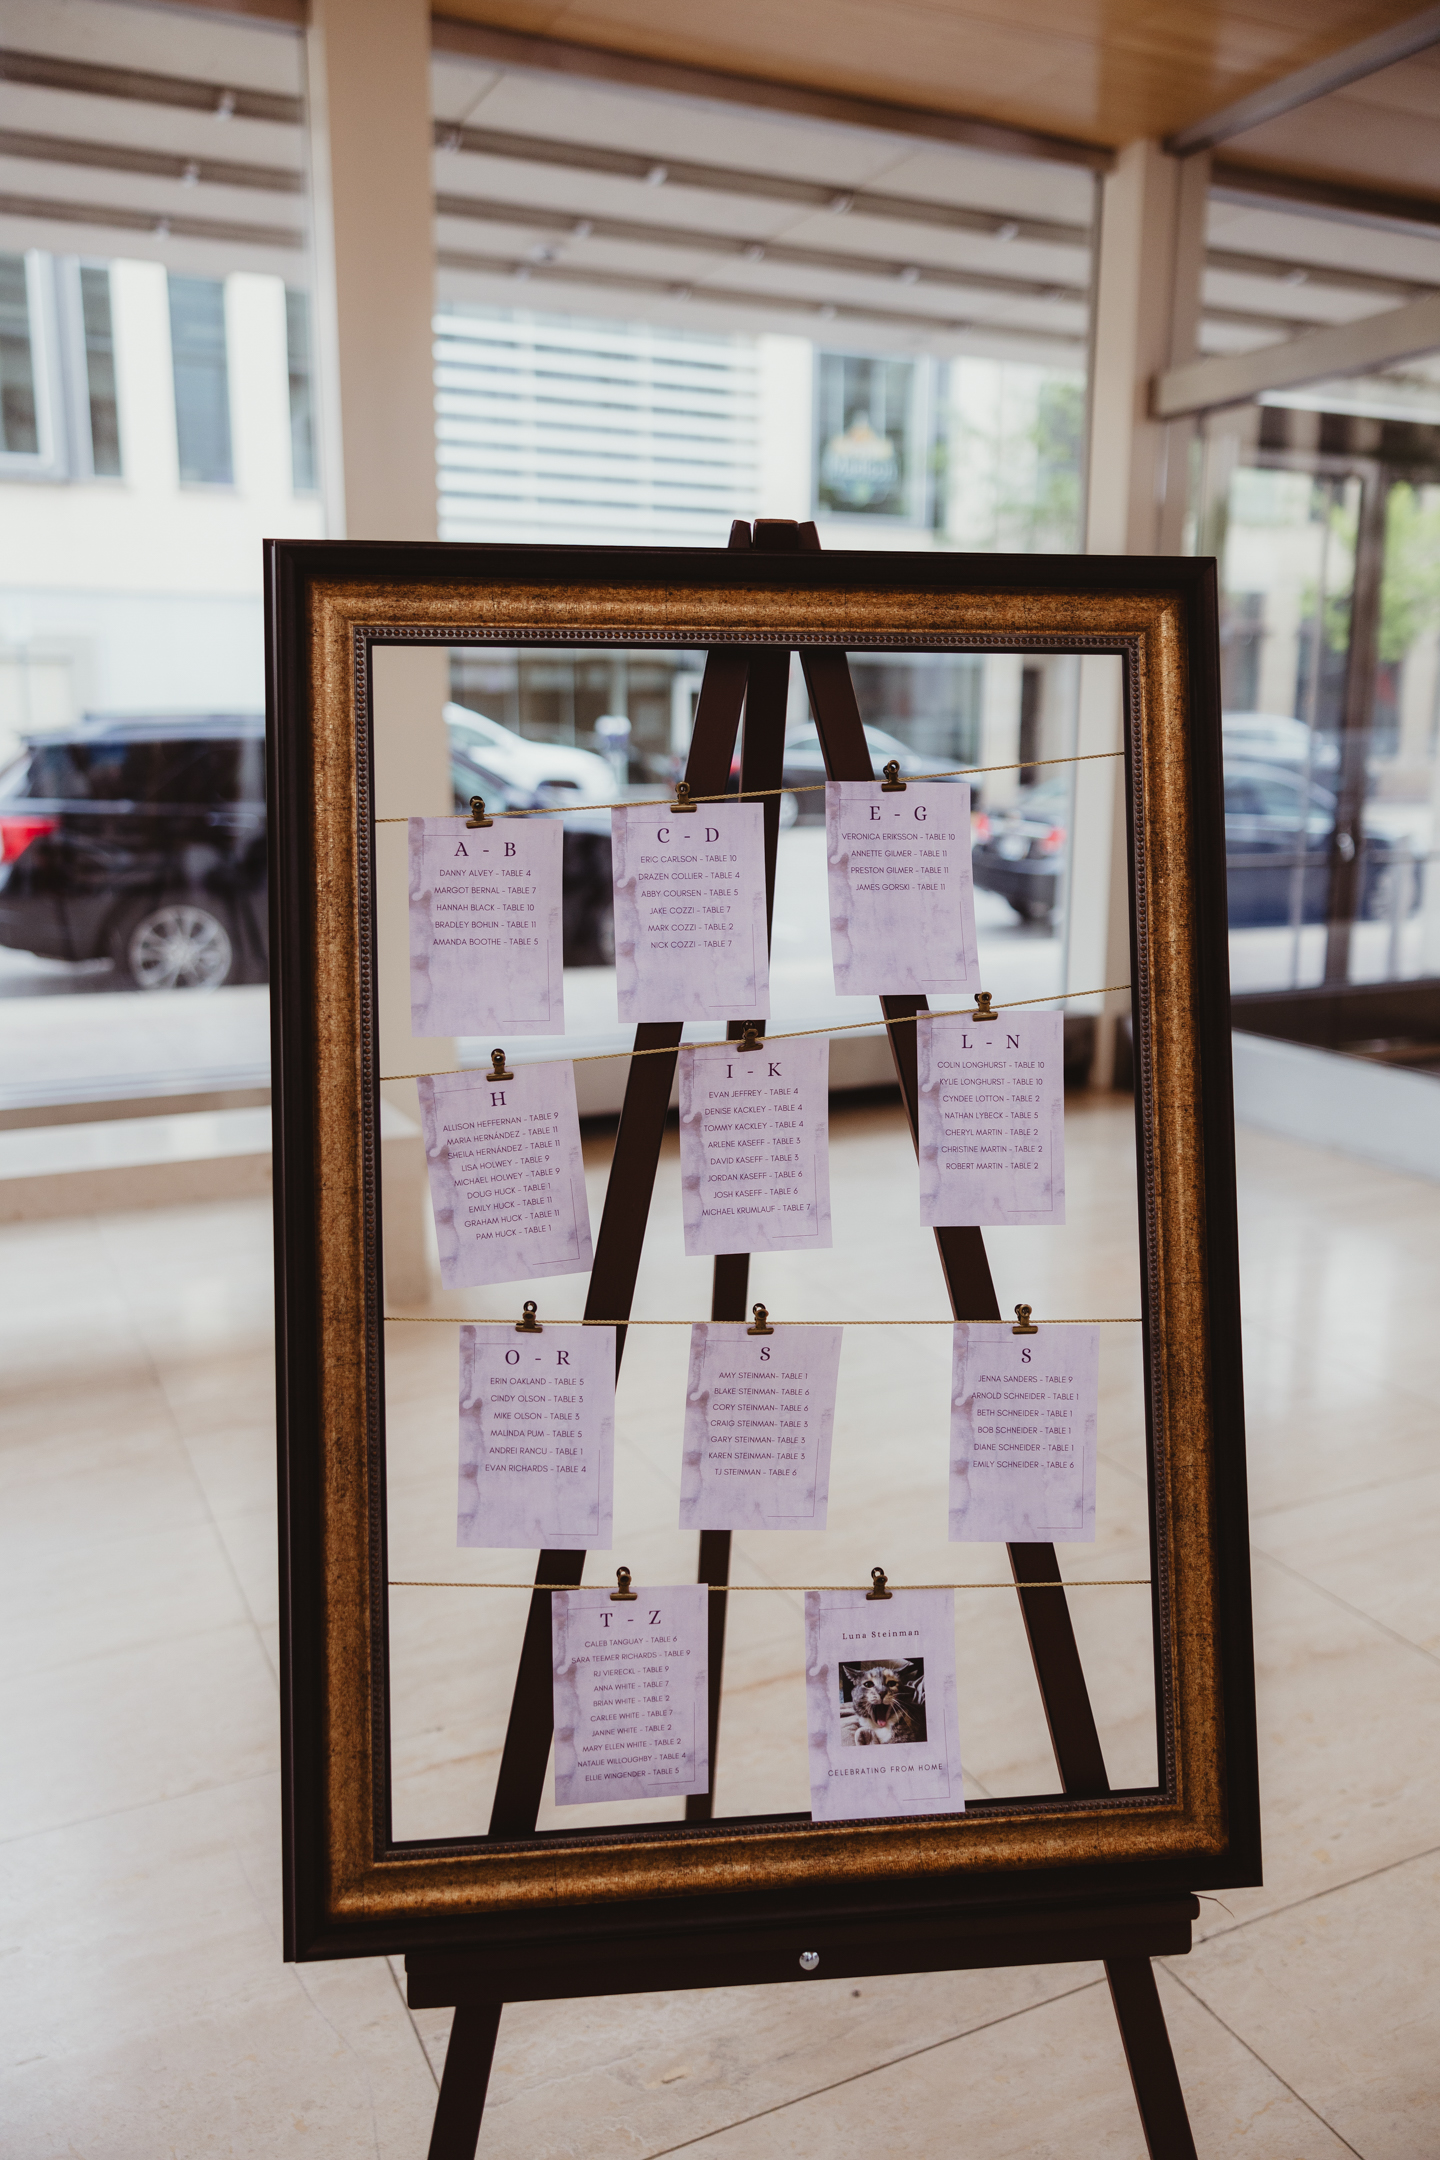 A - B
DANNY ALVEY - TABLE 4
MARGOT BERNAL - TABLE 7
HANNAH BLACK - TABLE 10
BRADLEY BOHLIN - TABLE 11
AMANDA BOOTHE - TABLE 5
C - D
ERIC CARLSON - TABLE 10
DRAZEN COLLIER - TABLE 4
ABBY COURSEN - TABLE 5
JAKE COZZI - TABLE 7
MARK COZZI - TABLE 2
NICK COZZI - TABLE 7
E - G
VERONICA ERIKSSON - TABLE 10
ANNETTE GILMER - TABLE 11
PRESTON GILMER - TABLE 11
JAMES GORSKI - TABLE 11
H
ALLISON HEFFERNAN - TABLE 9
MARIA HERNÁNDEZ - TABLE 11
SHEILA HERNÁNDEZ - TABLE 11
LISA HOLWEY - TABLE 9
MICHAEL HOLWEY - TABLE 9
DOUG HUCK - TABLE 1
EMILY HUCK - TABLE 11
GRAHAM HUCK - TABLE 11
PAM HUCK - TABLE 1
I - K
EVAN JEFFREY - TABLE 4
DENISE KACKLEY - TABLE 4
TOMMY KACKLEY - TABLE 4
ARLENE KASEFF - TABLE 3
DAVID KASEFF - TABLE 3
JORDAN KASEFF - TABLE 6
JOSH KASEFF - TABLE 6
MICHAEL KRUMLAUF - TABLE 7
L - N
COLIN LONGHURST - TABLE 10
KYLIE LONGHURST - TABLE 10
CYNDEE LOTTON - TABLE 2
NATHAN LYBECK - TABLE 5
CHERYL MARTIN - TABLE 2
CHRISTINE MARTIN - TABLE 2
ROBERT MARTIN - TABLE 2
O - R
ERIN OAKLAND - TABLE 5
CINDY OLSON - TABLE 3
MIKE OLSON - TABLE 3
MALINDA PUM - TABLE 5
ANDREI RANCU - TABLE 1
EVAN RICHARDS - TABLE 4
S
AMY STEINMAN- TABLE 1
BLAKE STEINMAN- TABLE 6
CORY STEINMAN- TABLE 6
CRAIG STEINMAN- TABLE 3
GARY STEINMAN- TABLE 3
KAREN STEINMAN- TABLE 3
TJ STEINMAN - TABLE 6
S
JENNA SANDERS - TABLE 9
ARNOLD SCHNEIDER - TABLE 1
BETH SCHNEIDER - TABLE 1
BOB SCHNEIDER - TABLE 1
DIANE SCHNEIDER - TABLE 1
EMILY SCHNEIDER - TABLE 6
T - Z
CALEB TANGUAY - TABLE 6
SARA TEEMER RICHARDS - TABLE 9
RJ VIERECKL - TABLE 9
ANNA WHITE - TABLE 7
BRIAN WHITE - TABLE 2
CARLEE WHITE - TABLE 7
JANINE WHITE - TABLE 2
MARY ELLEN WHITE - TABLE 2
NATALIE WILLOUGHBY - TABLE 4
ELLIE WINGENDER - TABLE 5
Luna Steinman
CELEBRATING FROM HOME